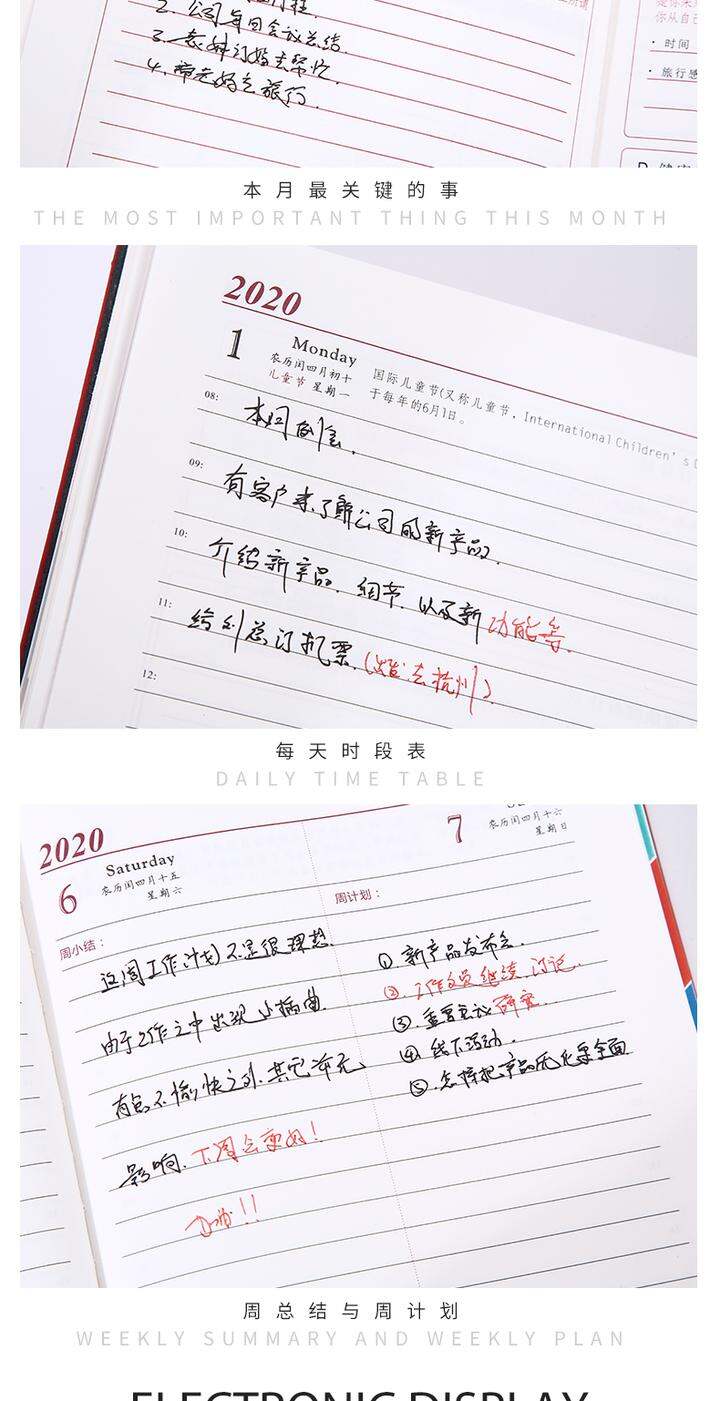 2. 公司年会会议总结
3. 表妹订婚去帮忙
4. 带老妈去旅行.
你从自己
· 时间
· 旅行感
本月最关键的事
THE MOST IMPORTANT THING THIS MONTH
2020
1 Monday
农历闰四月初十
儿童节 星期一
国际儿童节(又称儿童节, International Children's
于每年的6月1日。
08: 本周例会.
09: 有客户来了解公司的新产品.
10: 介绍新产品. 细节. 以及新功能等.
11: 给刘总订机票. (出发去杭州)
12:
每天时段表
DAILY TIME TABLE
2020
6 Saturday
农历闰四月十五
星期六
周小结:
这周工作计划不是很理想.
由于工作之中出现小插曲.
有些不愉快之外. 其它亦无
影响. 下周会更好!
加油!!
7
农历闰四月十六
星期日
周计划:
①. 新产品发布会.
②. 工作人员继续讨论.
③. 重要会议研究.
④. 线下活动.
⑤. 怎样把产品优化更全面
周总结与周计划
WEEKLY SUMMARY AND WEEKLY PLAN
ELECTRONIC DISPLAY